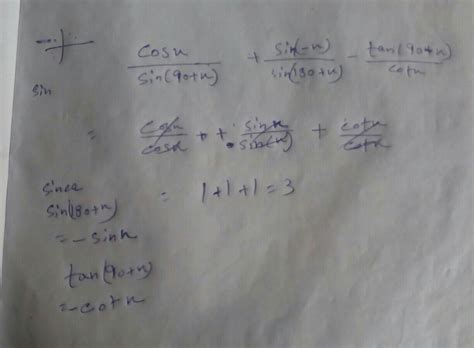 cosx/sin(90+x) + sin(-x)/sin(180+x) - tan(90+x)/cotx
sin
= cosx/cosx + + sinx/sin(x) + cotx/cotx
= 1+1+1=3
since
sin(180+x)
= -sinx
tan(90+x)
= -cotx